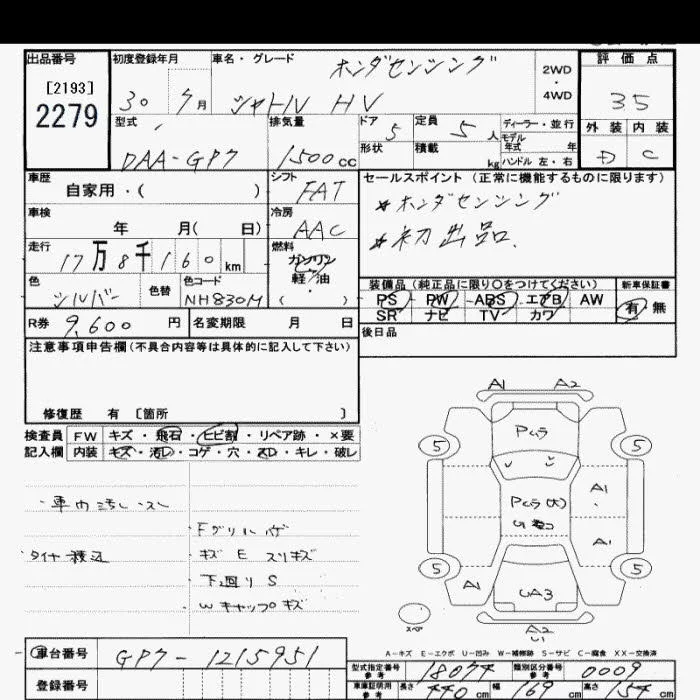 出品番号 初度登録年月 車名・グレード 評価点
[2193] ホンダセンシング 2WD
2279 30 7月 シャトル HV ・ 4WD 35
型式 排気量 ドア 5 定員 5人 ディーラー・並行 外装 内装
DAA-GP7 1500cc 形状 積載 kg モデル年式 年 D C
ハンドル 左・右
車歴 シフト セールスポイント (正常に機能するものに限ります)
自家用・( ) FAT *ホンダセンシング
車検 冷房 *初出品.
年 月( 日) AAC
走行 燃料
17万8千160km ガソリン
軽/油
( ・ )
色 色替 色コード 装備品(純正品に限り○をつけてください) 新車保証書
シルバー NH830M PS PW ABS エアB AW 有・無
SR ナビ TV カワ
R券 9,600円 名変期限 月 日 後日品
注意事項申告欄(不具合内容等は具体的に記入して下さい)
修復歴 有 [箇所 ]
検査員 FW キズ・飛石・ヒビ割・リペア跡・×要
記入欄 内装 キズ・汚レ・コゲ・穴・スレ・キレ・破レ
A1 A2
Pムラ
5 5
Pムラ(大)
A1
A1
5 5
A1
UA3
A2
U1
・車内汚レ・スレ
・Fグリルハゲ
タイヤ積込 ・キズ E スリキズ
・下廻りS
・Wキャップキズ
スペア
A-キズ E-エクボ U-凹み W-補修跡 S-サビ C-腐食 XX-交換済
車台番号 GP7-1215951
型式指定番号 参考 18074 類別区分番号 参考 0009
登録番号
車庫証明用 参考 長さ 440cm 幅 169cm 高さ 154cm